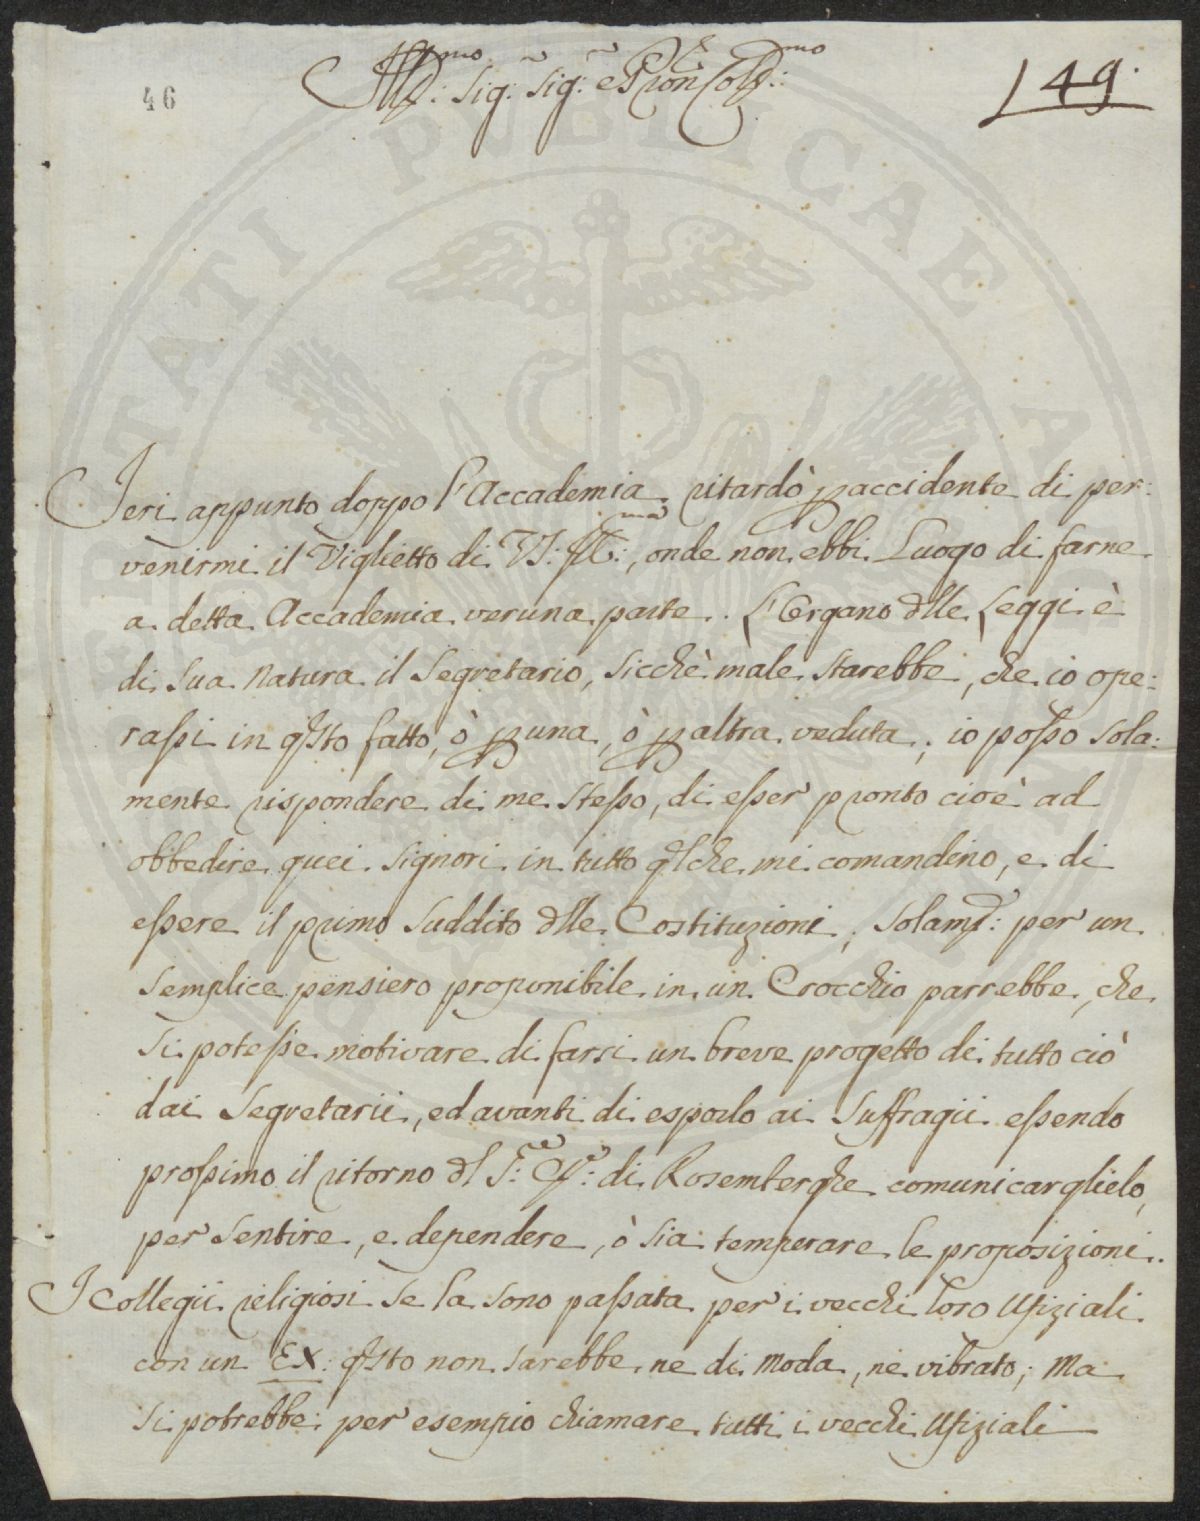 46
Ill:mo Sig: Sig: e Pron Col:mo
49.
Jeri appunto doppo l'Accademia ritardò p accidente di per:
venirmi il Viglietto di VS: Ill:ma, onde non ebbi Luogo di farne
a detta Accademia veruna parte. L'Organo dlle Leggi è
di Sua Natura il Segretario, sicchè male starebbe, che io ope:
rassi in qsto fatto, ò p una, ò p altra veduta; io posso sola:
mente rispondere di me stesso, di esser pronto cioè ad
obbedire quei Signori in tutto qlche mi comandino, e di
essere il primo Suddito dlle Costituzioni; solamte: per un
semplice pensiero proponibile in un Crocchio parrebbe, che
si potesse motivare di farsi un breve progetto di tutto ciò
dai Segretarii, ed avanti di esporlo ai Suffragii essendo
prossimo il ritorno dl S:e di Rosemberghe comunicarglielo,
per sentire, e dependere, ò sia temperare le proposizioni.
I Collegii religiosi se la sono passata per i vecchi loro Ufiziali
con un Ex: qsto non sarebbe ne di Moda, ne vibrato; Ma
si potrebbe per esempio chiamare tutti i vecchi Ufiziali
PUBLICAE